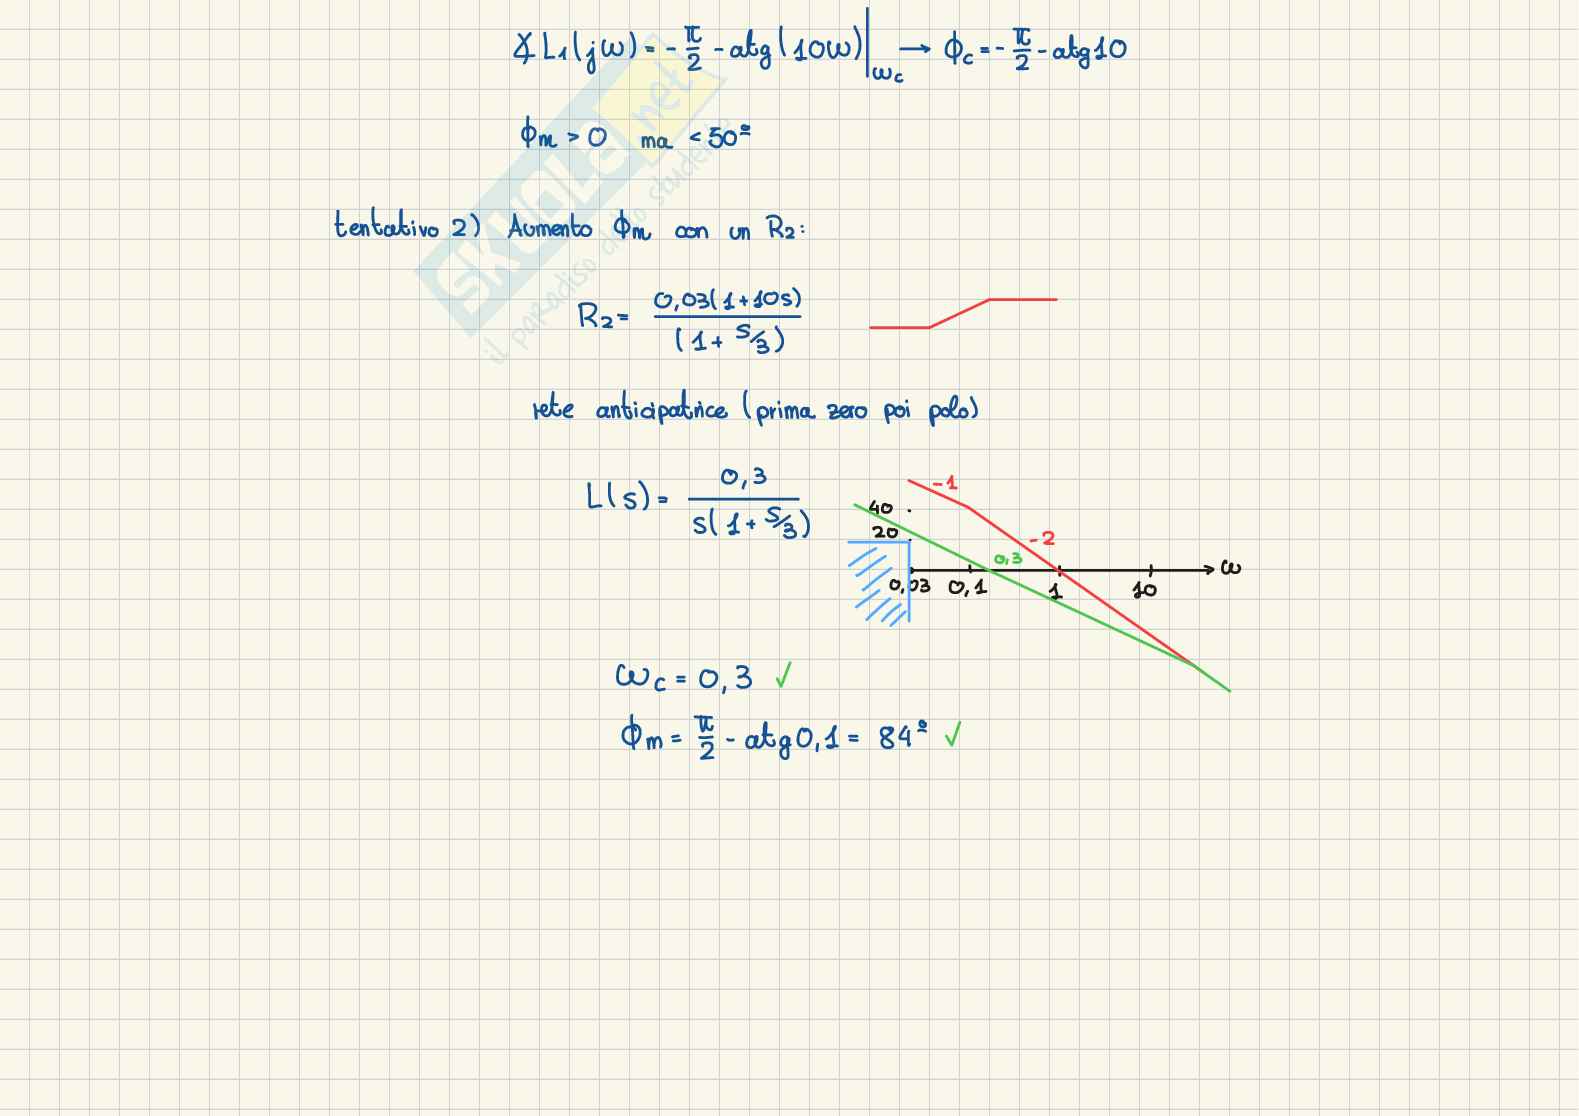 ∡L₁(jω) = -π/2 - atg(10ω)|ωc → ϕc = -π/2 - atg10
ϕm > 0 ma < 50°
tentativo 2) Aumento ϕm con un R₂:
R₂ = 0,03(1+10s) / (1+s/3)
rete anticipatrice (prima zero poi polo)
L(s) = 0,3 / s(1+s/3)
-1
40
20
-2
0,3
0,03 0,1 1 10 ω
ωc = 0,3 ✓
ϕm = π/2 - atg0,1 = 84° ✓
SKUOLA.net
il paradiso dello studente